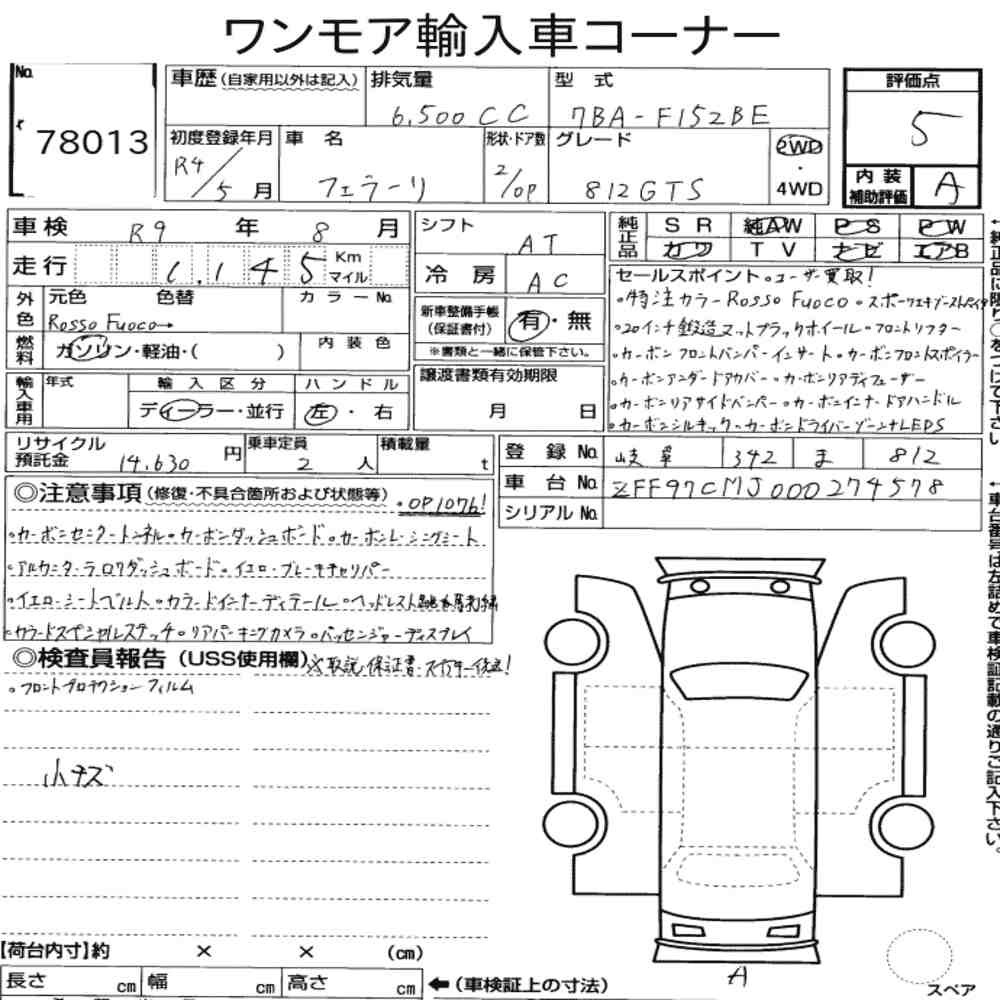 ワンモア輸入車コーナー
No. 78013
車歴(自家用以外は記入) 排気量 6,500CC 型式 7BA-F152BE
初度登録年月 R4/5月 車名 フェラーリ 形状・ドア数 2/OP グレード 812GTS 2WD・4WD
評価点 5
内装補助評価 A
車検 R9年 8月
走行 1,145 Km マイル
シフト AT
冷房 AC
純正品 SR 純AW PS PW
カワ TV ナビ エアB
外色 元色 色替 カラーNo.
Rosso Fuoco→
燃料 ガソリン・軽油・( ) 内装色
新車整備手帳(保証書付) 有・無
※書類と一緒に保管下さい。
輸入車用 年式 輸入区分 ハンドル
ディーラー・並行 左・右
譲渡書類有効期限
月 日
セールスポイント。ユーザー買取!
・特注カラーRosso Fuoco
・20インチ鍛造マットブラックホイール・フロントリフター
・カーボンフロントバンパーインサート・カーボンフロントスポイラー
・カーボンアンダードアカバー・カーボンリアディフューザー
・カーボンリアサイドバンパー・カーボンインナードアハンドル
・カーボンシルキック・カーボンドライバーゾーン+LEDS
リサイクル預託金 14,630円 乗車定員 2人 積載量 t
登録No. 岐阜 342 ま 812
車台No. ZFF97CMJ000274578
シリアルNo.
◎注意事項(修復・不具合箇所および状態等)・OP1076!
・カーボンセンタートンネル・カーボンダッシュボード・カーボンレーシングシート
・アルカンターラロワダッシュボード・イエローブレーキキャリパー
・イエローシートベルト・カラードインナーディテール・ヘッドレスト跳ね馬刺繍
・カラードスペシャルステッチ・リアパーキングカメラ・パッセンジャーディスプレイ
◎検査員報告(USS使用欄)※取説、保証書・スペアキー後送!
・フロントプロテクションフィルム
小キズ
【荷台内寸】約 × × (cm)
長さ cm 幅 cm 高さ cm ←(車検証上の寸法)
A
スペア
←車台番号は左詰めで車検証記載の通りご記入下さい。